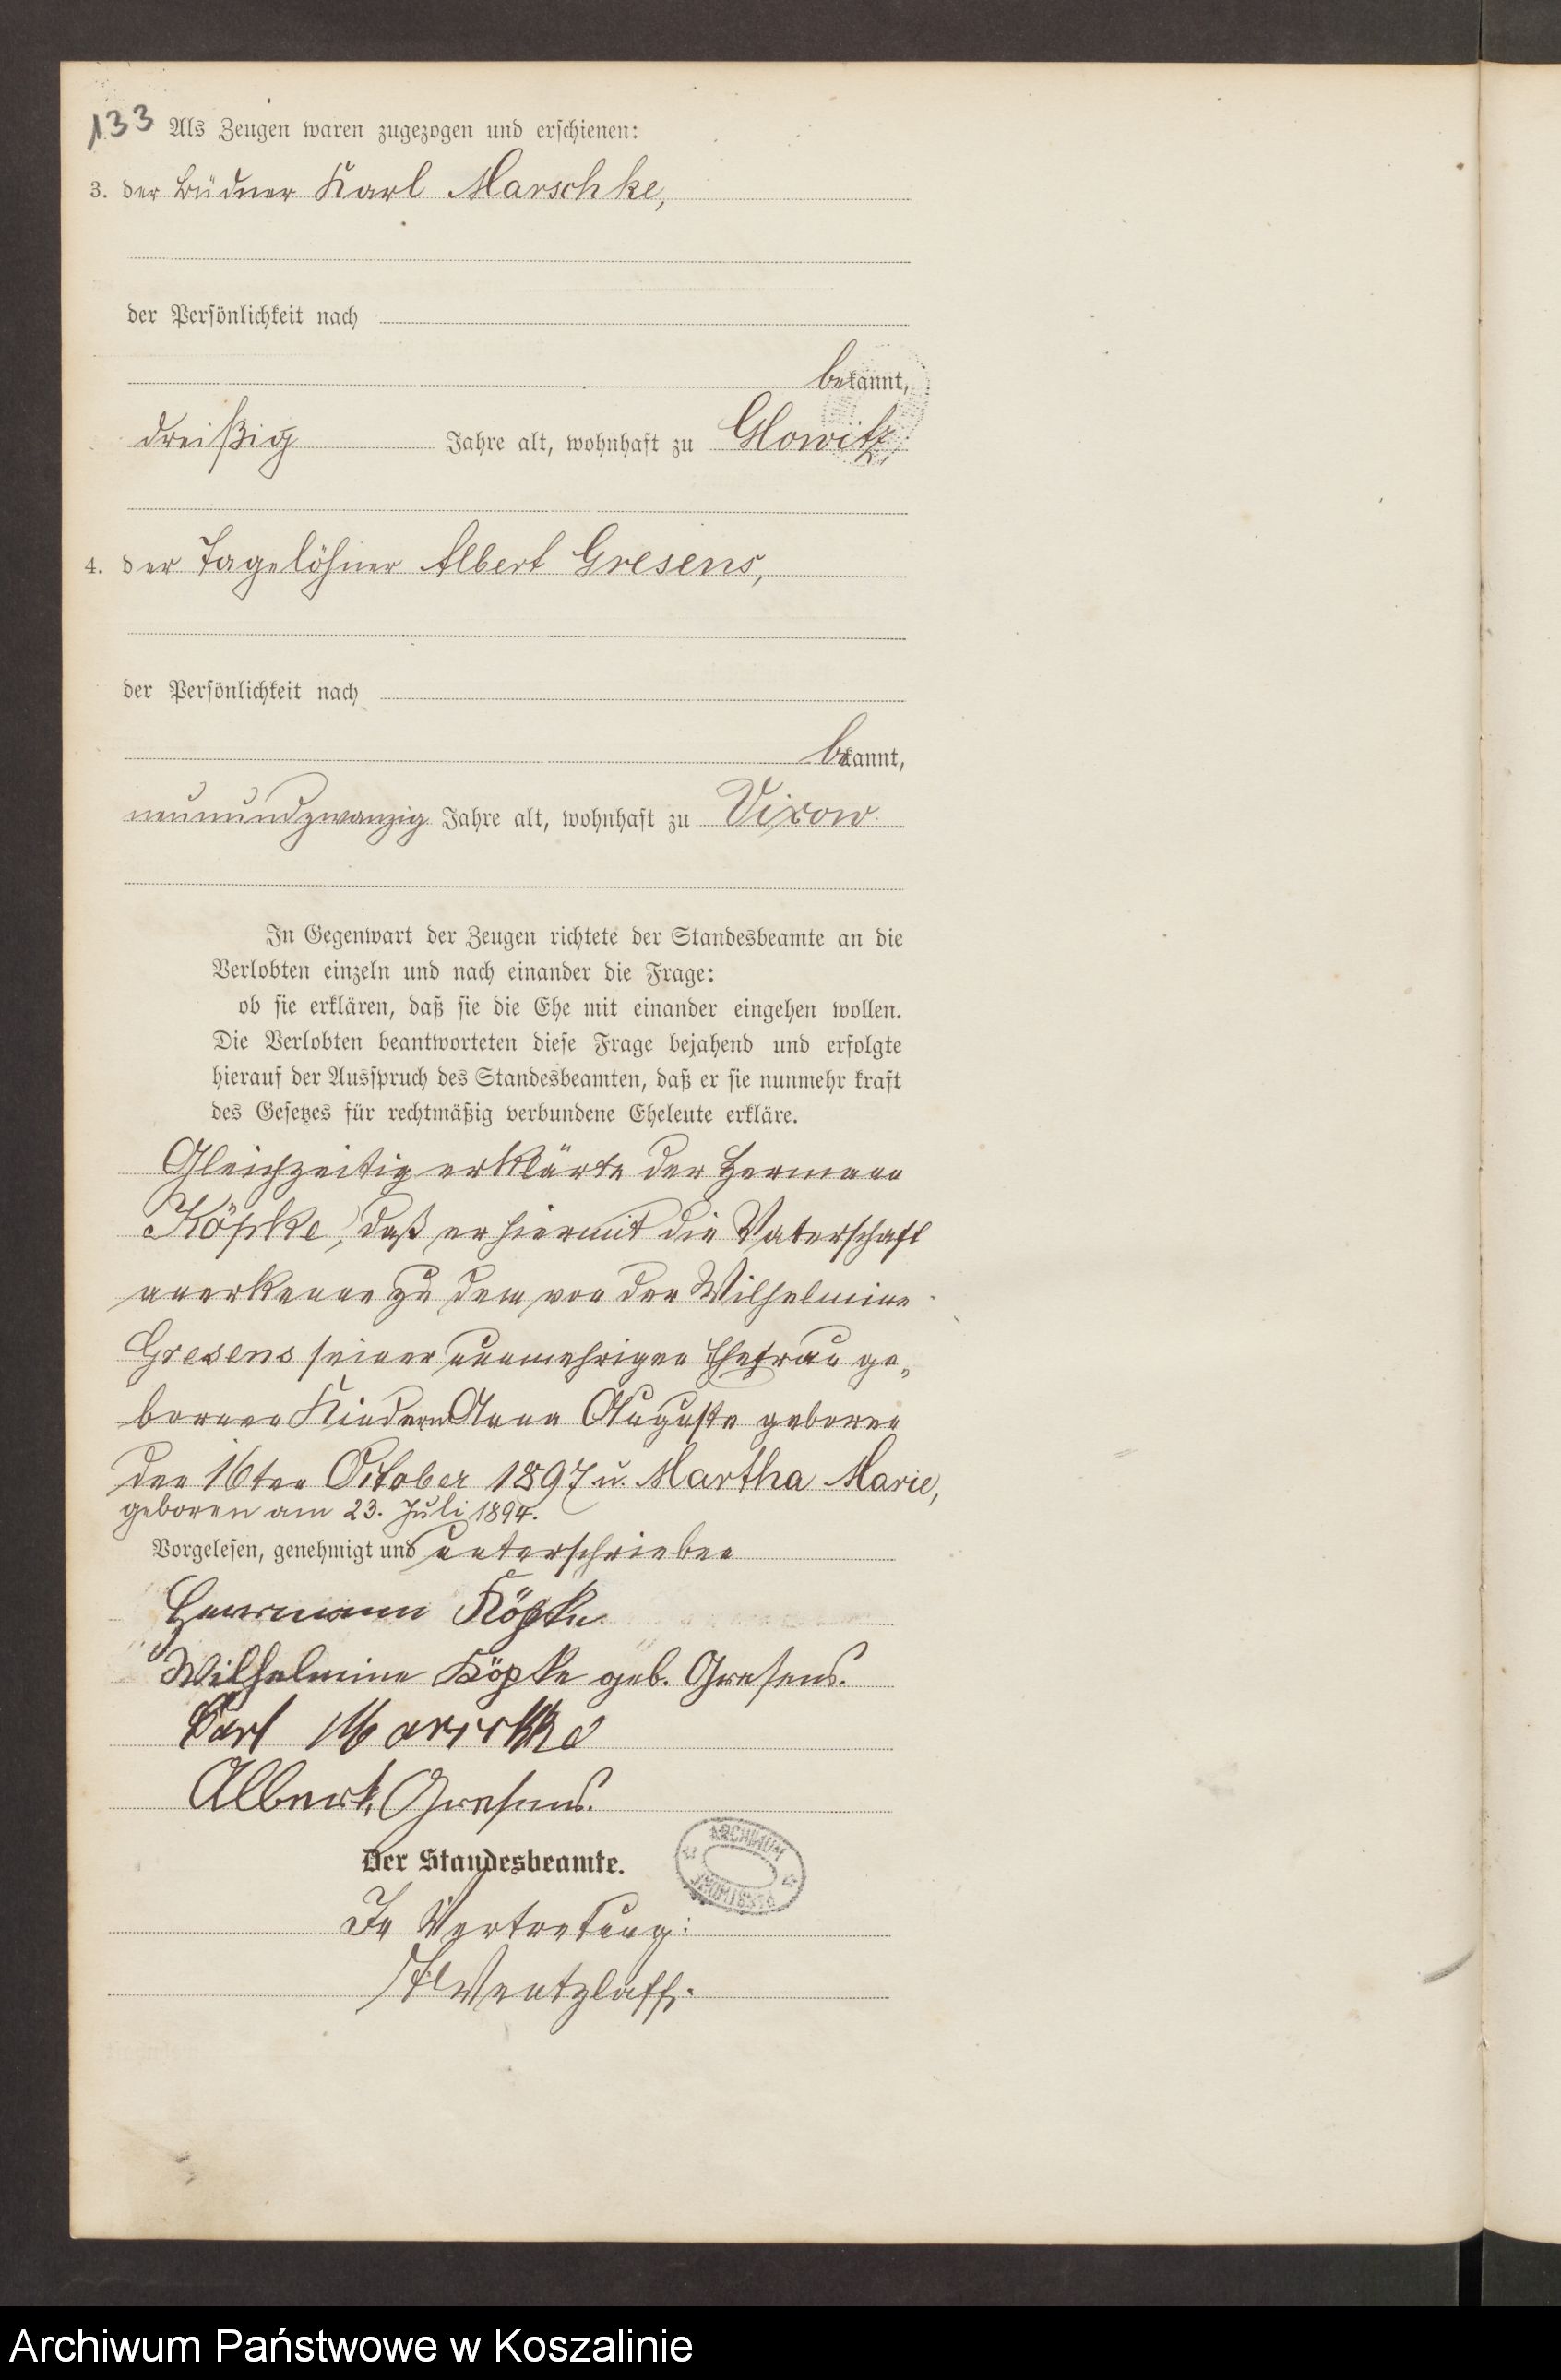 133 Als Zeugen waren zugezogen und erschienen:
3. der Büdner Karl Marschke,
der Persönlichkeit nach
bekannt,
dreißig Jahre alt, wohnhaft zu Glowitz
4. der Tagelöhner Albert Gresens,
der Persönlichkeit nach
bekannt,
neunundzwanzig Jahre alt, wohnhaft zu Vixow.
In Gegenwart der Zeugen richtete der Standesbeamte an die
Verlobten einzeln und nach einander die Frage:
ob sie erklären, daß sie die Ehe mit einander eingehen wollen.
Die Verlobten beantworteten diese Frage bejahend und erfolgte
hierauf der Ausspruch des Standesbeamten, daß er sie nunmehr kraft
des Gesetzes für rechtmäßig verbundene Eheleute erkläre.
Gleichzeitig erklärte der Hermann
Köpke, daß er hiermit die Vaterschaft
anerkenne zu dem von der Wilhelmine
Gresens seiner nunmehrigen Ehefrau ge„
borenen Kindern Anna Auguste geboren
den 16ten October 1897 u. Martha Marie,
geboren am 23. Juli 1894.
Vorgelesen, genehmigt und unterschrieben
Herrmann Köpke.
Wilhelmine Köpke geb. Gresens.
Karl Marschke
Albert Gresens.
Der Standesbeamte.
ARCHIWUM
In Vertretung:
Wentzlaff.
Archiwum Państwowe w Koszalinie